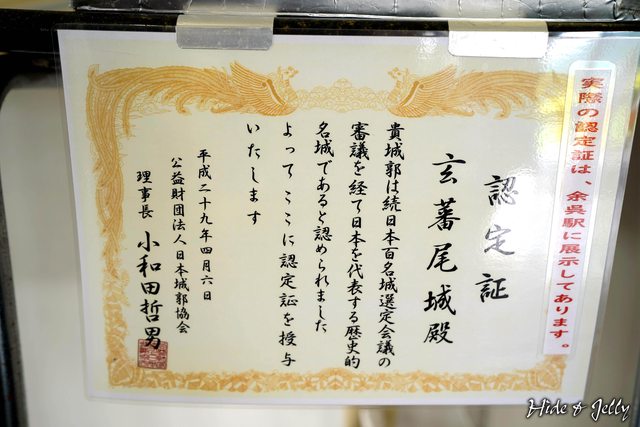 実際の認定証は、余呉駅に展示してあります。
認定証
玄蕃尾城殿
貴城郭は続日本百名城選定会議の
審議を経て日本を代表する歴史的
名城であると認められました
よってここに認定証を授与
いたします
平成二十九年四月六日
公益財団法人日本城郭協会
理事長 小和田哲男
Hide & Jelly